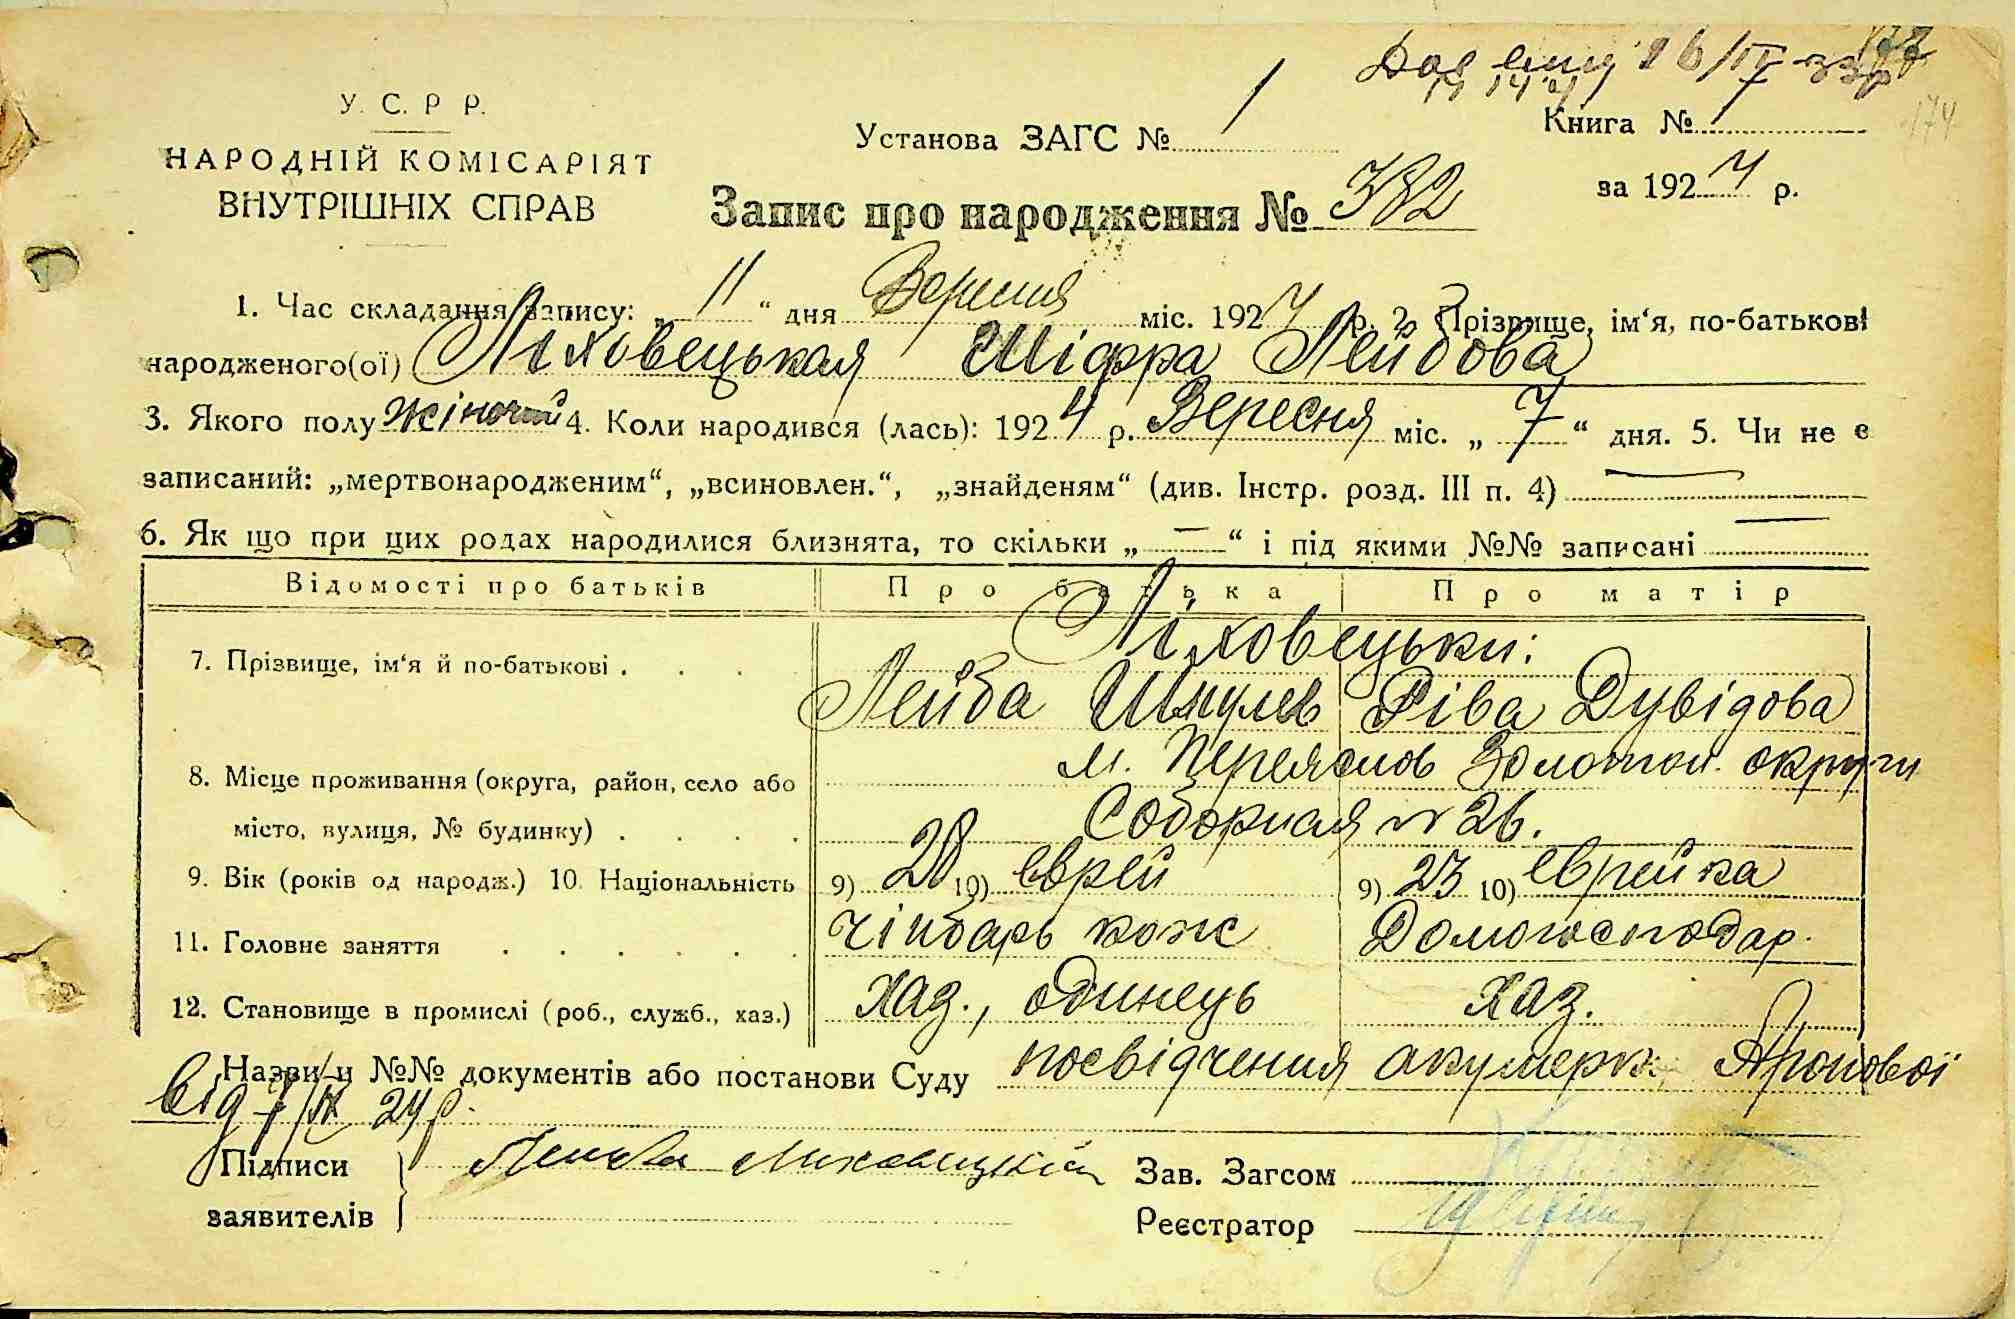 177
174
У. С. Р. Р.
НАРОДНІЙ КОМІСАРІЯТ
ВНУТРІШНІХ СПРАВ
Установа ЗАГС № 1
Книга №
за 1924 р.
Запис про народження № 382
1. Час складання запису: „ 11 “ дня Вересня міс. 1924 р. 2. Прізвище, ім‘я, по-батькові
народженого(ої) Ліховецькая Шіфра Лейбова
3. Якого полу жіночий 4. Коли народився (лась): 1924 р. Вересня міс. „ 7 “ дня. 5. Чи не є
записаний: „мертвонародженим“, „всиновлен.“, „знайденям“ (див. Інстр. розд. III п. 4) —
6. Як що при цих родах народилися близнята, то скільки „ — “ і під якими №№ записані —
Відомості про батьків Про батька Про матір
Ліховецьки:
7. Прізвище, ім‘я й по-батькові . . . Лейба Шмулев Ріва Дувідова
м. Переяслов Золотон. округи
8. Місце проживання (округа, район, село або
місто, вулиця, № будинку) . . . . Соборная № 26.
9. Вік (років од народж.) 10. Національність 9) 28 10) еврей 9) 23 10) еврейка
11. Головне заняття . . . . . . Чінбарь кож Домогосподар.
12. Становище в промислі (роб., служб., хаз.) хаз., одинець хаз.
Назви и №№ документів або постанови Суду посвідчення акушерк. Аронової
від 7/IX 24 р.
Підписи
заявителів
Лейба Лиховецкий
Зав. Загсом
Реєстратор